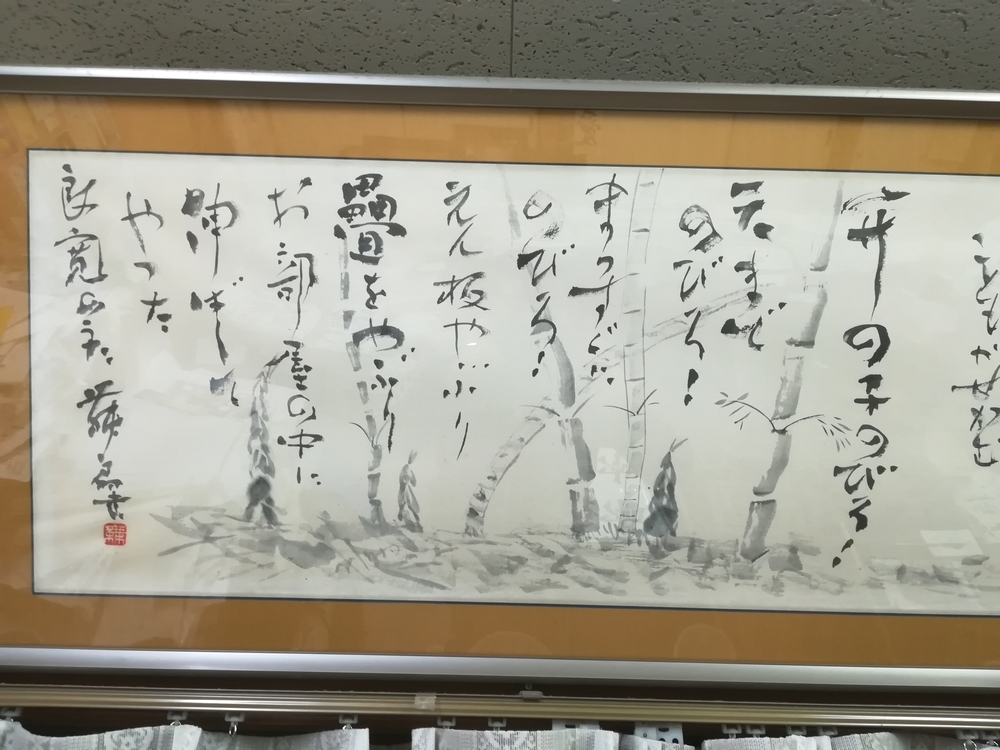 竹の子のびろ!
天まで
のびろ!
まっすぐに
のびろ!
えん板やぶり
疊をやぶり
お部屋の中に
伸ばして
やった
良寛